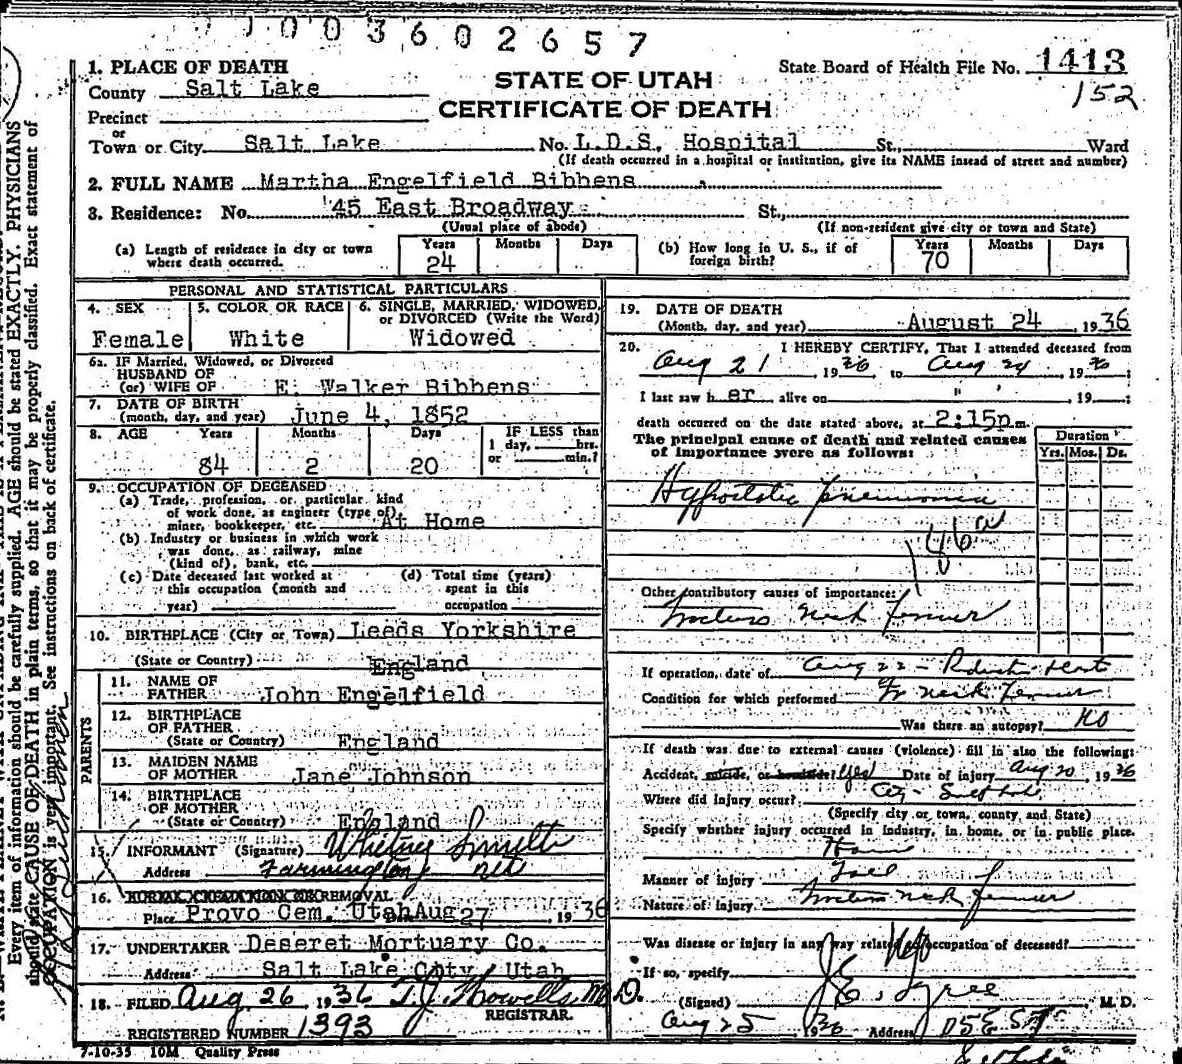 7 0 0 3 6 0 2 6 5 7
State Board of Health File No. 1413
152
STATE OF UTAH
CERTIFICATE OF DEATH
1. PLACE OF DEATH
County Salt Lake
Precinct
or
Town or City Salt Lake No. L.D.S. Hospital St., Ward
(If death occurred in a hospital or institution, give its NAME instead of street and number)
2. FULL NAME Martha Engelfield Bibbens
3. Residence: No. 45 East Broadway St.,
(Usual place of abode) (If non-resident give city or town and State)
(a) Length of residence in city or town where death occurred. Years 24 Months Days
(b) How long in U. S., if of foreign birth? Years 70 Months Days
PERSONAL AND STATISTICAL PARTICULARS
4. SEX Female
5. COLOR OR RACE White
6. SINGLE, MARRIED, WIDOWED, or DIVORCED (Write the Word) Widowed
6a. IF Married, Widowed, or Divorced
HUSBAND OF
(or) WIFE OF E. Walker Bibbens
7. DATE OF BIRTH
(month, day, and year) June 4, 1852
8. AGE Years Months Days IF LESS than
1 day, hrs.
or min.?
84 2 20
9. OCCUPATION OF DECEASED
(a) Trade, profession, or particular kind
of work done, as engineer (type of),
miner, bookkeeper, etc. At Home
(b) Industry or business in which work
was done, as railway, mine
(kind of), bank, etc.
(c) Date deceased last worked at
this occupation (month and
year)
(d) Total time (years)
spent in this
occupation
10. BIRTHPLACE (City or Town) Leeds Yorkshire
(State or County) England
PARENTS
11. NAME OF
FATHER John Engelfield
12. BIRTHPLACE
OF FATHER
(State or Country) England
13. MAIDEN NAME
OF MOTHER Jane Johnson
14. BIRTHPLACE
OF MOTHER
(State or Country) England
15. INFORMANT (Signature) Whitney Smith
Address Farmington
16. REMOVAL
Place Provo Cem. Utah Aug 27, 1936
17. UNDERTAKER Deseret Mortuary Co.
Address Salt Lake City, Utah
18. FILED Aug 26 1936 T. J. Howells M.D.
REGISTRAR.
REGISTERED NUMBER 1393
7-10-35 10M Quality Press
19. DATE OF DEATH
(Month, day, and year) August 24, 1936
20. I HEREBY CERTIFY, That I attended deceased from
Aug 21, 1936 to Aug 24, 1936;
I last saw her alive on " ", 19 ;
death occurred on the date stated above, at 2:15p m.
The principal cause of death and related causes
of importance were as follows:
Duration
Yrs. Mos. Ds.
Hypostatic pneumonia
186a
Other contributory causes of importance:
Fracture neck femur
If operation, date of Aug 22 -
Condition for which performed Fr neck femur
Was there an autopsy? no
If death was due to external causes (violence) fill in also the following:
Accident, suicide, or homicide? Yes Date of injury Aug 20, 1936
Where did injury occur? City - Salt Lake
(Specify city or town, county, and State)
Specify whether injury occurred in industry, in home, or in public place.
Home
Manner of injury Fall
Nature of injury Fracture neck femur
Was disease or injury in any way related to occupation of deceased? No
If so, specify
(Signed) J. E. Tyree M. D.
Aug 25 1936 Address
Every item of information should be carefully supplied. AGE should be stated EXACTLY. PHYSICIANS
should state CAUSE OF DEATH in plain terms, so that it may be properly classified. Exact statement of
OCCUPATION is very important. See instructions on back of certificate.